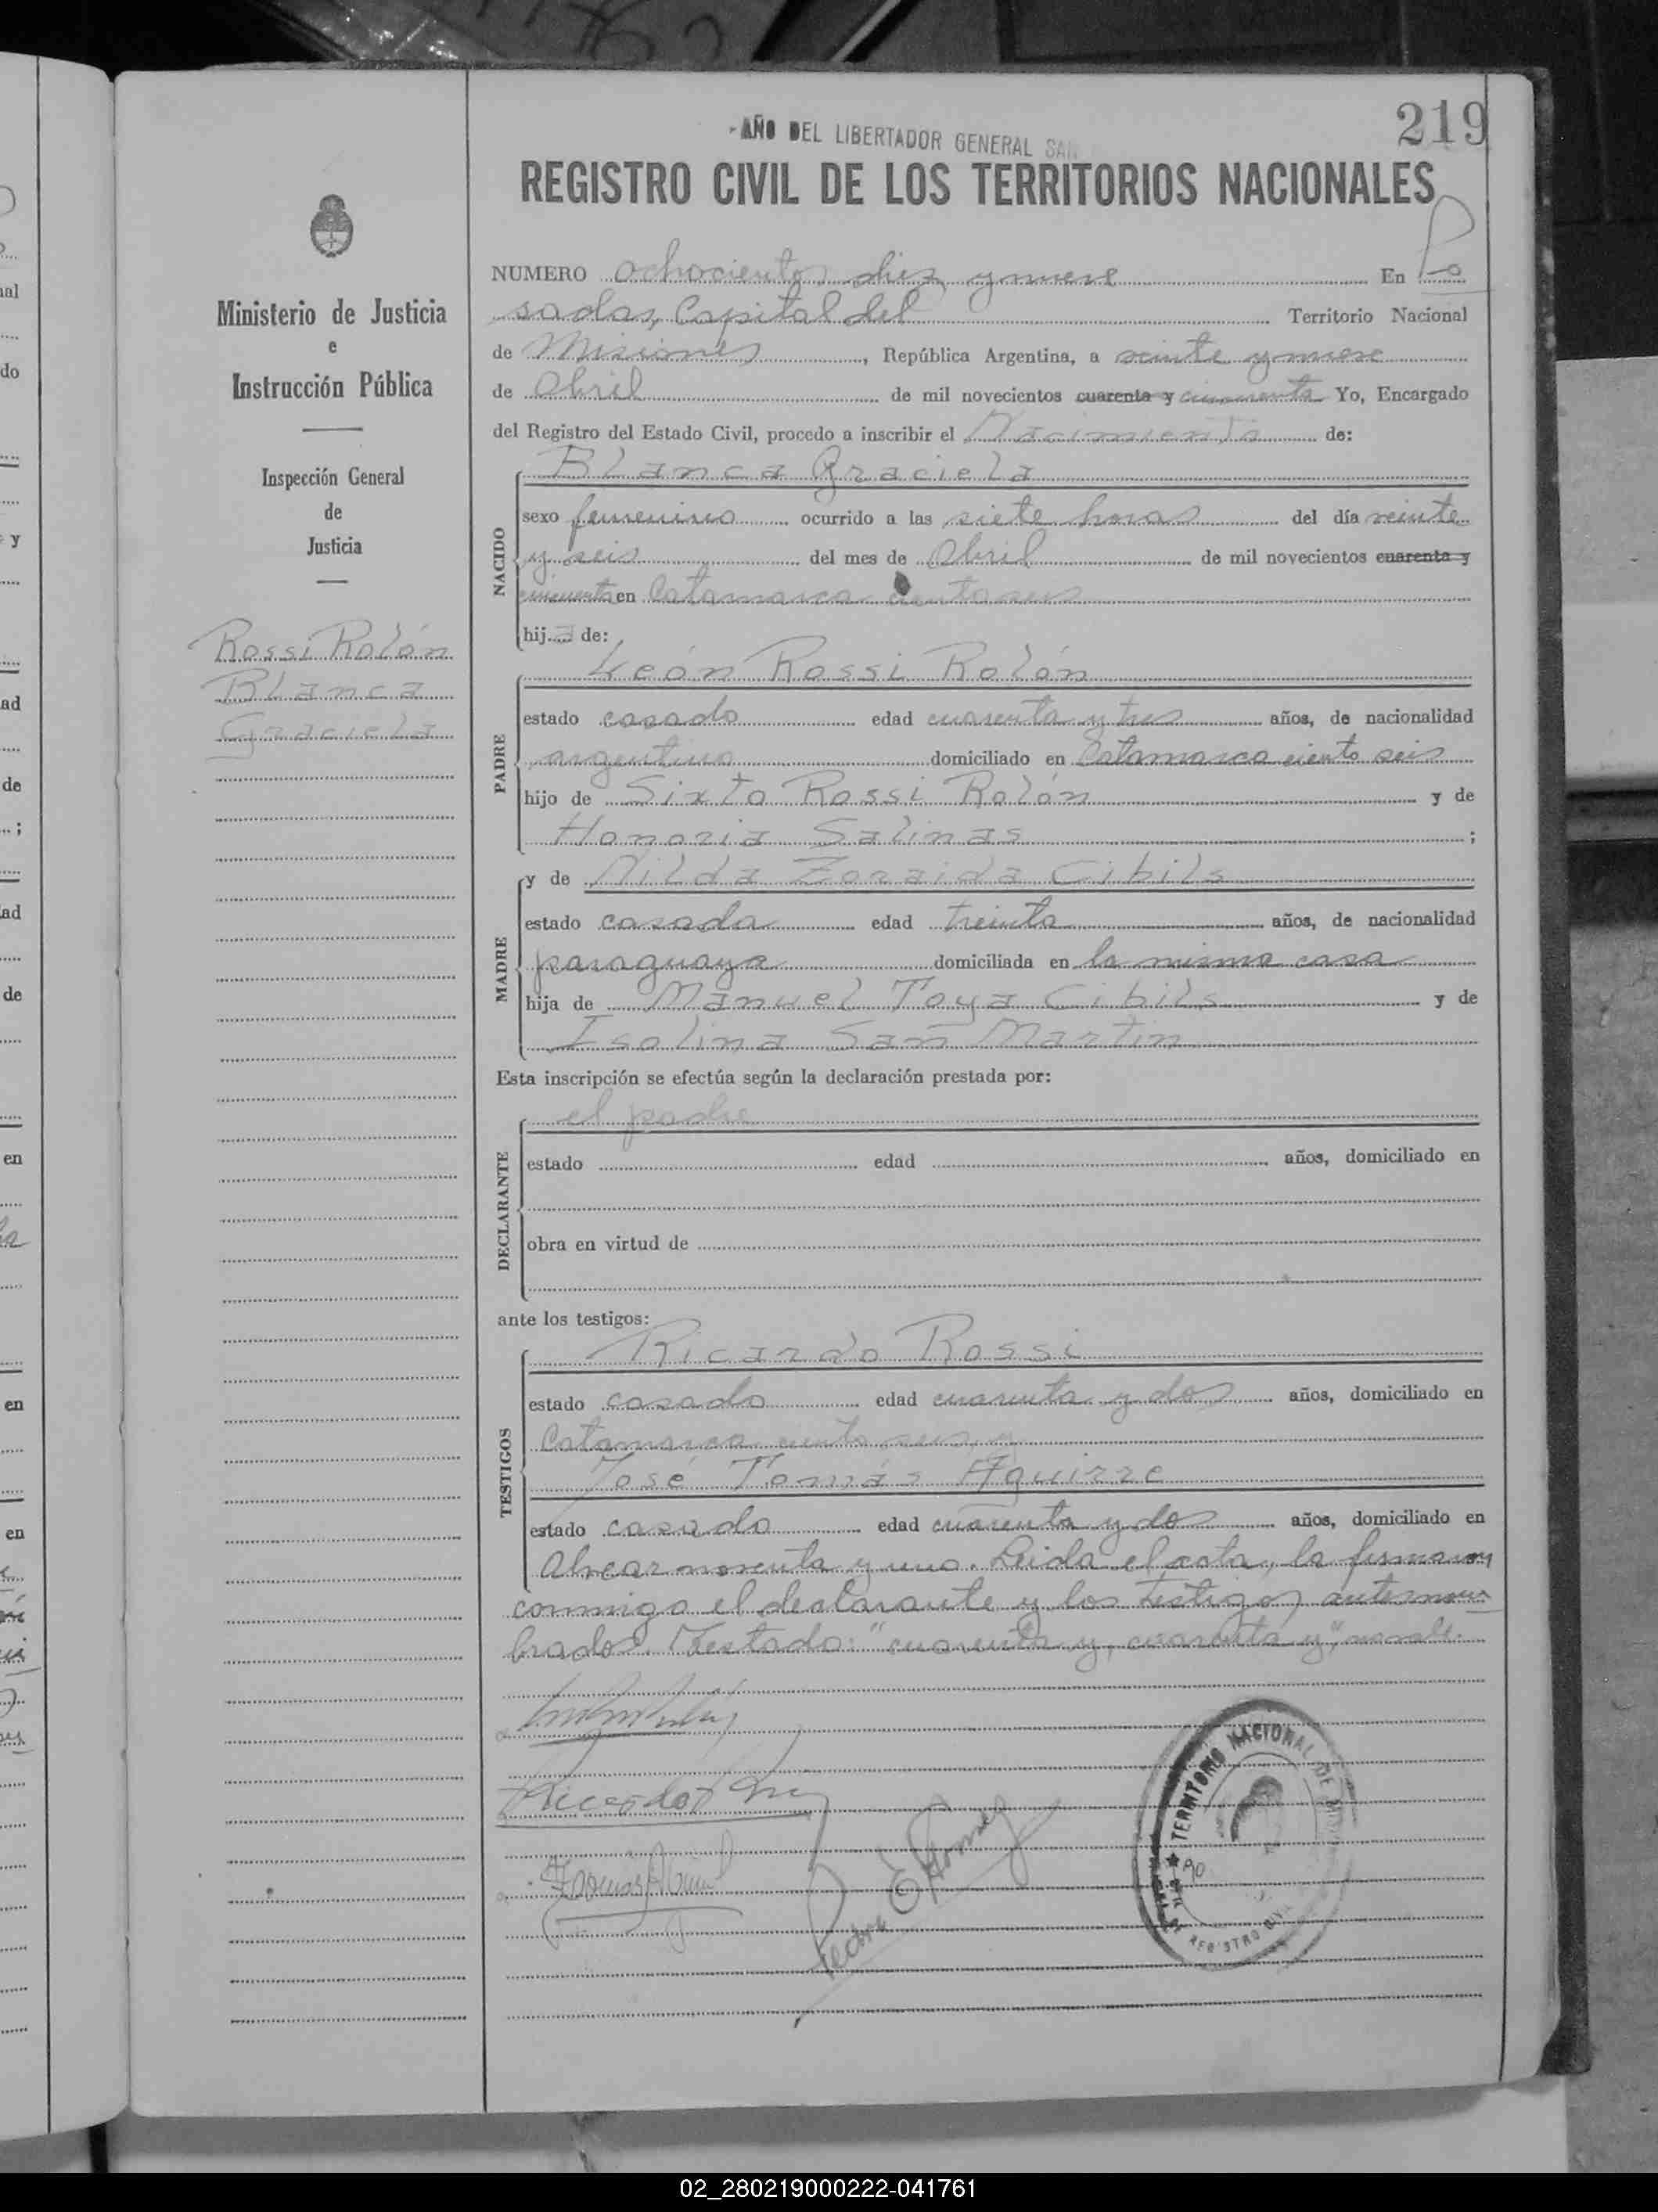 219
AÑO DEL LIBERTADOR GENERAL SAN
REGISTRO CIVIL DE LOS TERRITORIOS NACIONALES
Ministerio de Justicia
e
Instrucción Pública
Inspección General
de
Justicia
Rossi Rolón
Blanca
Graciela
NUMERO ochocientos diez y nueve En Po
sadas, Capital del Territorio Nacional
de Misiones, República Argentina, a veinte y nueve
de Abril de mil novecientos cuarenta y cincuenta Yo, Encargado
del Registro del Estado Civil, procedo a inscribir el Nacimiento de:
Blanca Graciela
NACIDO
sexo femenino ocurrido a las siete horas del día veinte
y seis del mes de Abril de mil novecientos cuarenta y
cincuenta en Catamarca ciento seis
hija de:
León Rossi Rolón
PADRE
estado casado edad cuarenta y tres años, de nacionalidad
argentino domiciliado en Catamarca ciento seis
hijo de Sixto Rossi Rolón y de
Honoria Salinas ;
y de Nilda Zoraida Cibils
MADRE
estado casada edad treinta años, de nacionalidad
paraguaya domiciliada en la misma casa
hija de Manuel Toya Cibils y de
Isolina San Martin
Esta inscripción se efectúa según la declaración prestada por:
el padre
DECLARANTE
estado edad años, domiciliado en
obra en virtud de
ante los testigos:
Ricardo Rossi
TESTIGOS
estado casado edad cuarenta y dos años, domiciliado en
Catamarca ciento seis, y
José Tomás Aguirre
estado casado edad cuarenta y dos años, domiciliado en
Alvear noventa y uno. Leida el acta, la firmaron
conmigo el declarante y los testigos antenom
brados. Testado: "cuarenta y, cuarenta y", no vale.
TERRITORIO NACIONAL DE MISIONES
REGISTRO CIVIL
02_280219000222-041761